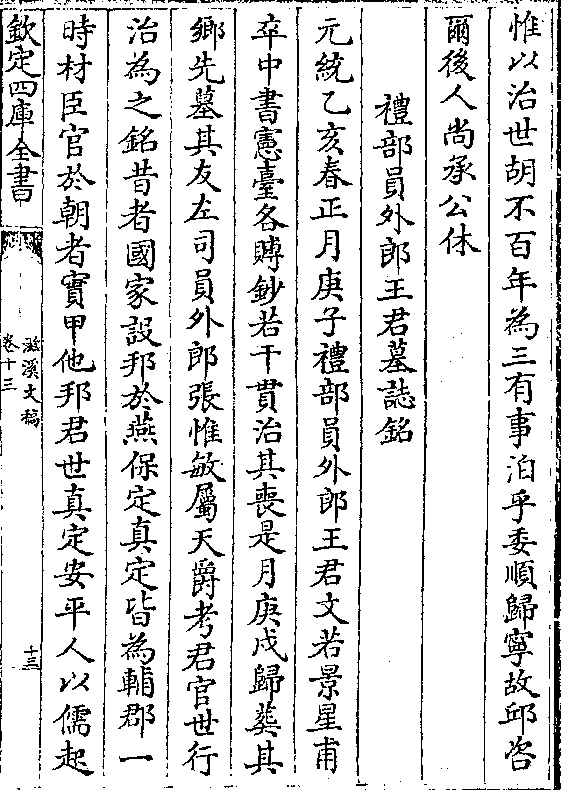 惟以治世胡不百年為三有事洎乎委順歸寧故邱咨
爾後人尚承公休
禮部員外郎王君墓誌銘
元統乙亥春正月庚子禮部員外郎王君文若景星甫
卒中書憲臺各賻鈔若干貫治其喪是月庚戌歸葬其
鄉先墓其友左司員外郎張惟敏屬天爵考君官世行
治為之銘昔者國家設邦於燕保定真定皆為輔郡一
時材臣官於朝者實甲他邦君世真定安平人以儒起
欽定四庫全書
滋溪文稿
卷十三
十三